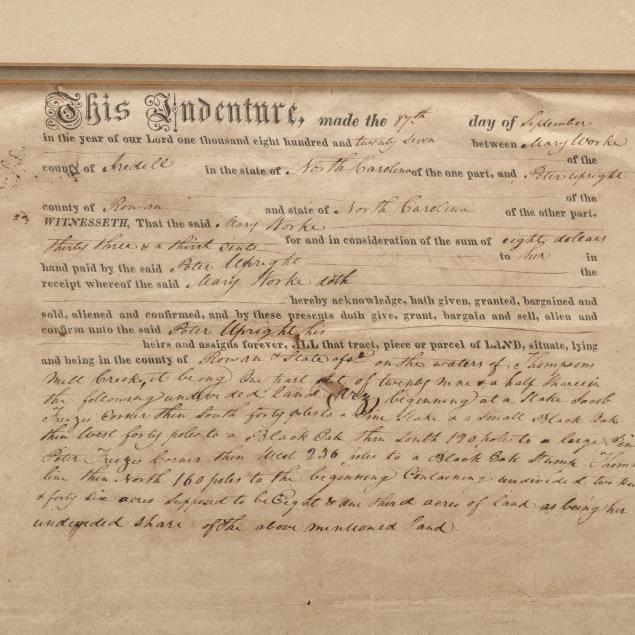 This Indenture, made the 17th day of September
in the year of our Lord one thousand eight hundred and twenty Seven between Mary Worke
of the
county of Iredell in the state of North Carolina of the one part, and Peter Upright
of the
county of Rowan and state of North Carolina of the other part,
WITNESSETH, That the said Mary Worke
thirty three & a third cents for and in consideration of the sum of eighty dollars
hand paid by the said Peter Upright to her in
receipt whereof the said Mary Worke doth the
hereby acknowledge, hath given, granted, bargained and
sold, aliened and confirmed, and by these presents doth give, grant, bargain and sell, alien and
confirm unto the said Peter Upright his
heirs and assigns forever, ALL that tract, piece or parcel of LAND, situate, lying
and being in the county of Rowan & State afsd on the waters of Thompsons
Mill Creek, it being One part of twenty nine & a half Shares in
the following undivided land (Viz) beginning at a Stake Jacob
Freezes Corner then South forty poles to a Pine Stake & a Small Black Oak
then West forty poles to a Black Oak then South 120 poles to a large Pine
Peter Freezes Corner then West 236 poles to a Black Oak Stump
line then North 160 poles to the beginning Containing undivided two
& forty six acres Supposed to be Eight & one third acres of land as being her
undivided Share of the above mentioned land